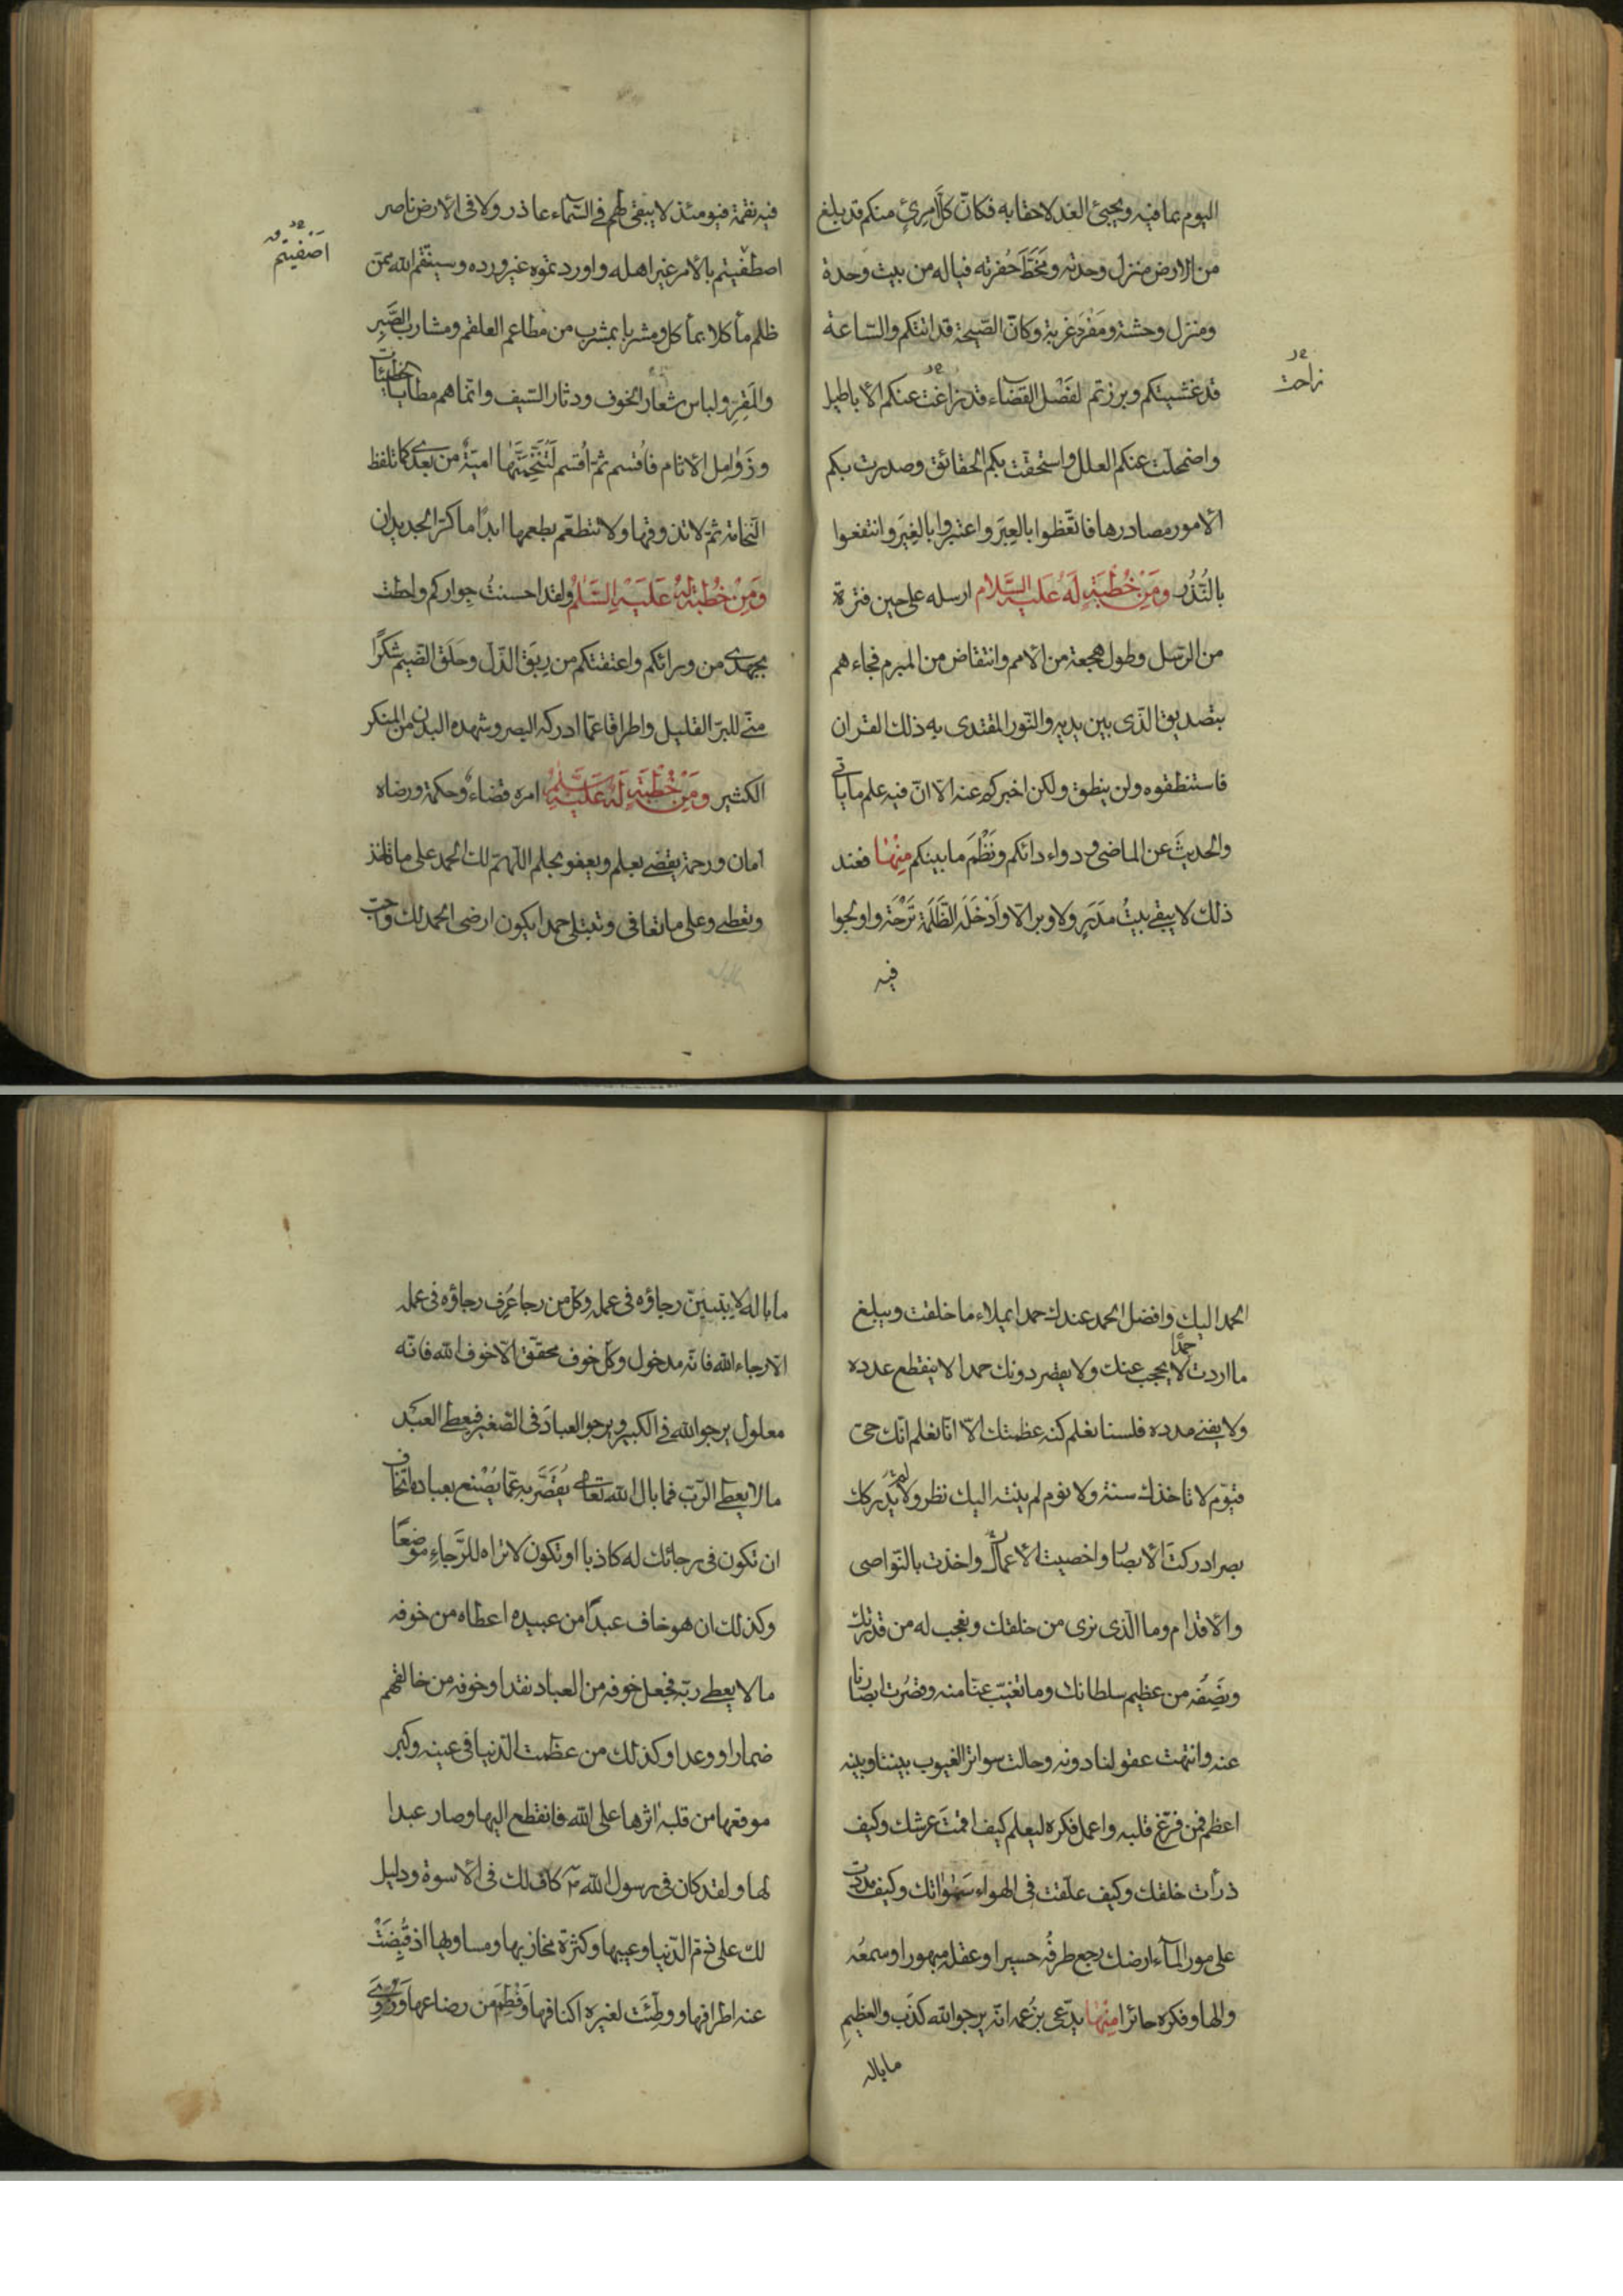 اليوم بما فيه ويجيئ الغد لاحقا به فكانّ كلّ امرئٍ منكم قد بلغ
من الارض منزل وحدته ومَخَطَّ حُفرته فيا له من بيت وحدة
ومنزل وحشة ومَفْرَدِ غربة وكانّ الصّيحة قد اتتكم والسّاعة
قد غشيتكم وبرزتم لفَصْل القضاء قد زاغت عنكم الاباطيل
زاحت
واضمحلّت عنكم العلل واستحقّت بكم الحقائق وصدرت بكم
الامور مصادرها فاتّعظوا بالعِبَر واعتبروا بالغِيَر وانتفعوا
بالنُّذُر ومَنْ خُطْبَةٍ لَهُ عَلَيه السَّلام ارسله على حين فترة
من الرّسل وطول هجعة من الامم وانتقاض من المبرم فجاءهم
بتصديق الّذى بين يديه والنّور المقتدى به ذلك القران
فاستنطقوه ولن ينطق ولكن اخبركم عنه الا انّ فيه علم ما ياتى
والحديثَ عن الماضى ودواء دائكم ونَظْمَ ما بينكم مِنْهَا فعند
ذلك لا يبقى بيتُ مَدَرٍ ولا وبر الّا وأَدْخَلَه الظَّلَمَة تَرْحَة واولجوا
فيه
فيه نقمة فيومئذ لا يبقى لهم فى السّماء عاذر ولا فى الارض ناصر
اصطفيتم بالامر غير اهله واوردتموه غير ورده وسينتقم الله ممّن
اصفيتم
ظلم مأكلا بمأكل ومشربا بمشرب من مطاعم العلقم ومشارب الصَّبِرِ
والمَقِرِ ولباس شعار الخوف ودثار السّيف وانّما هم مطايا الخطيئات
وزَوامِل الاثام فاُقسم ثمّ اُقسم لَتَنْخَمَنَّها اميّة من بعدى كما تلفظ
النّخامة ثمّ لا تذوقها ولا تتطعّم بطعمها ابدًا ما كرّ الجديدان
ومِنْ خُطْبَة لَهُ عَلَيْهِ السَّلَمُ ولقد احسنتُ جواركم واحطت
بجهدى من ورائكم واعتقتكم من رِبَق الذّلّ وحَلَق الضّيم شكرًا
منّى للبرّ القليل واطراقا عمّا ادركه البصر وشهده البدن من المنكر
الكثير ومِنْ خُطْبَةٍ لَهُ عَلَيْهِ السَّلَمُ امره قضاء وحكمة ورضاه
امان ورحمة يقضى بعلم ويعفو بحلم اللّهمّ لك الحمد على ما تاخذ
وتعطى وعلى ما تعافى وتبتلى حمدا يكون ارضى الحمد لك واحبّ
الحمد اليك وافضل الحمد عندك حمدا يملاء ما خلقت ويبلغ
ما اردت حمدًا لا يحجب عنك ولا يقصر دونك حمدا لا ينقطع عدده
ولا يفنى مدده فلسنا نعلم كنه عظمتك الّا انّا نعلم انّك حىّ
قيّوم لا تاخذك سنة ولا نوم لم ينته اليك نظر ولم يدركك
بصر ادركتَ الابصار واحصيت الاعمال واخذت بالنّواصى
والاقدام وما الّذى نرى من خلقك ونعجب له من قدرتك
ونَصِفُه من عظيم سلطانك وما تغيّب عنّا منه وقصُرت ابصارنا
عنه وانتهت عقولنا دونه وحالت سواتر الغيوب بيننا وبينه
اعظم فمن فرّغ قلبه واعمل فكره ليعلم كيف اقمتَ عرشك وكيف
ذرأت خلقك وكيف علّقت فى الهواء سَمٰوٰاتك وكيف مددت
على مور المآء ارضك رجع طرفُه حسيرا وعقله مبهورا وسمعُه
والها وفكره حائرا مِنْهَا يدّعى بزُعمه انّه يرجو الله كذَب والعظيمِ
ما باله
ما باله لا يتبيّن رجاؤه فى عمله وكل من رجا عُرِف رجاؤه فى عمله
الّا رجاء الله فانّه مدخول وكلّ خوف محقّق الّا خوف الله فانّه
معلول يرجو الله فى الكبير ويرجو العبادَ فى الصّغير فيعطى العَبْد
ما لا يعطى الرّبّ فما بال الله تعالى يُقَصَّر به عمّا يُصْنع بعباده اتخاف
ان تكون فى رجائك له كاذبا او تكون لا تراه للرَّجاءِ موضعًا
وكذلك ان هو خاف عبدًا من عبيده اعطاه من خوفه
ما لا يعطى ربّه فجعل خوفه من العباد نقدا وخوفه من خالقهم
ضمارا ووعدا وكذلك من عظمت الدّنيا فى عينه وكبر
موقعها من قلبه اثرها على الله فانقطع اليها وصار عبدا
لها ولقد كان فى رسول الله ص كاف لك فى الاسوة ودليل
لك على ذمّ الدّنيا وعيبها وكثرة مخازيها ومساويها اذ قُبِضَتْ
عنه اطرافها ووطِّئَت لغيره اكنافها وفُطِمَ من رضاعها وزُوِىَ